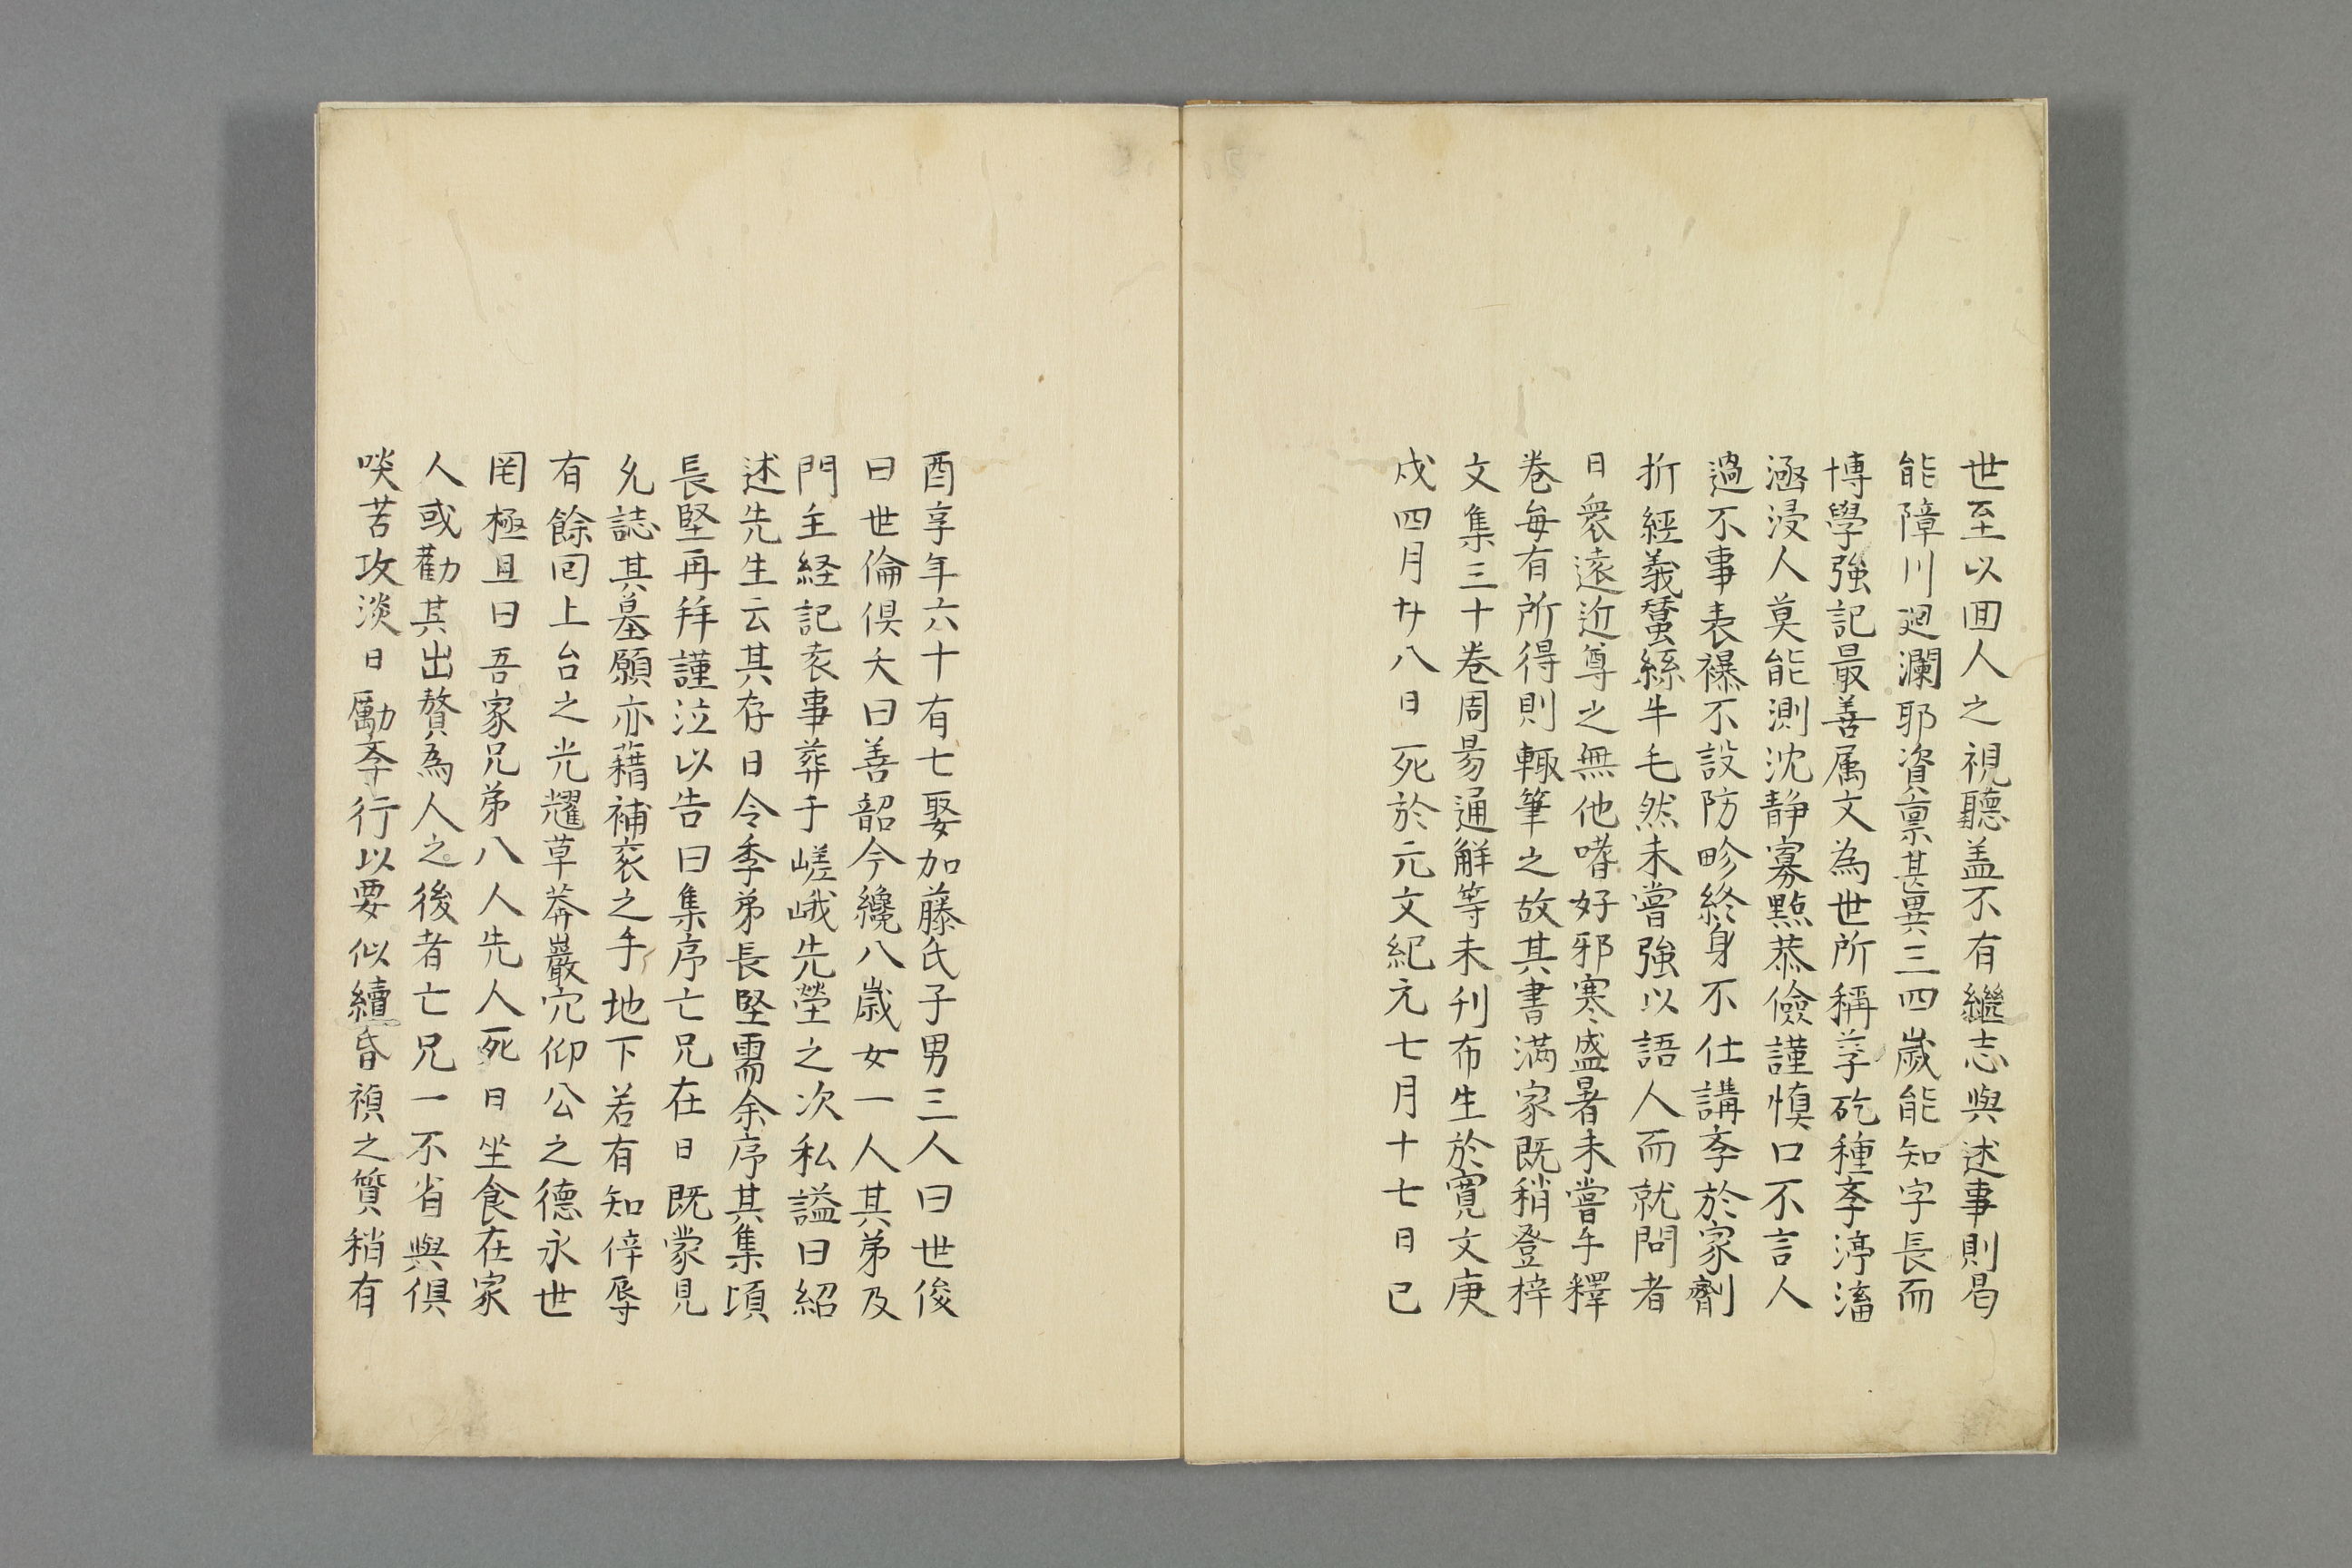 世至以囬人之視聽盖不有繼志與述事則曷
能障川廻瀾耶資禀甚異三四歲能知字長而
博學強記最善属文為世所稱孳矻種斈渟滀
涵浸人莫能測沈静寡默恭儉謹慎口不言人
過不事表襮不設防畛終身不仕講斈於家劑
折經義蠶絲牛毛然未嘗強以語人而就問者
日衆遠近尊之無他嗜好邪寒盛暑未嘗手釋
卷每有所得則輙筆之故其書満家既稍登梓
文集三十卷周易通解等未刊布生於寛文庚
戌四月廿八日死於元文紀元七月十七日已
酉享年六十有七娶加藤氏子男三人曰世俊
曰世倫俱夭曰善韶今纔八歳女一人其弟及
門主経記衣事葬于嵯峨先塋之次私謚曰紹
述先生云其存日令季弟長堅需余序其集頃
長堅再拜謹泣以告曰集序亡兄在日既蒙見
允誌其墓願亦藉補衮之手地下若有知倖辱
有餘囘上台之光耀草莽巖穴仰公之德永世
罔極且曰吾家兄弟八人先人死日坐食在家
人或勸其出贅為人之後者亡兄一不省與俱
啖苦攻淡日勵斈行以要似續昏禎之質稍有